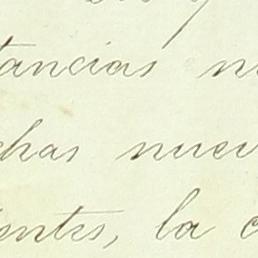 tancias n
chas nuev
ientes, la c